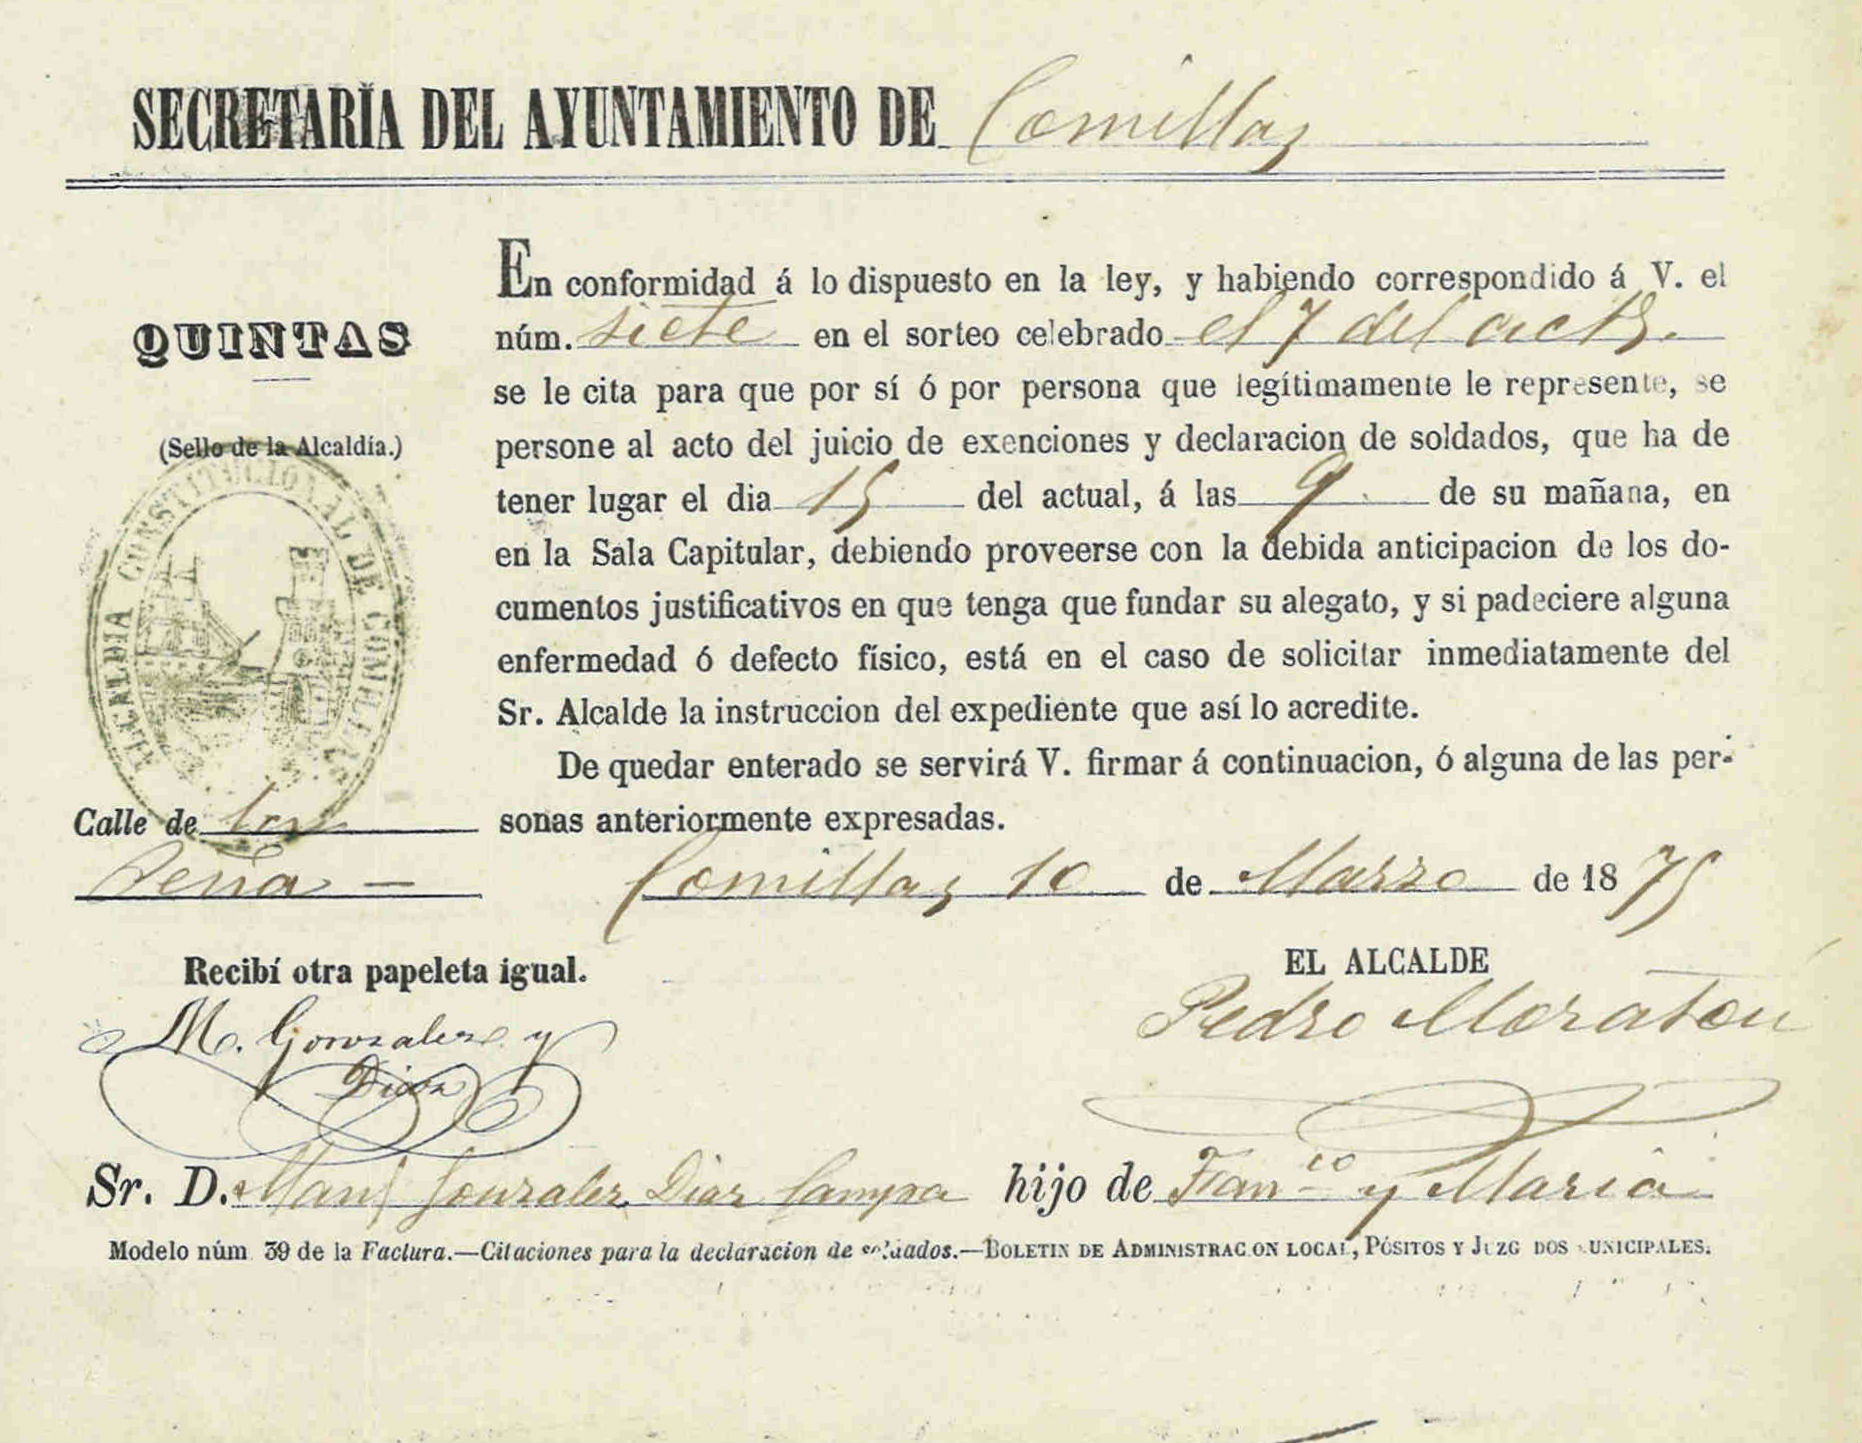 SECRETARÍA DEL AYUNTAMIENTO DE Comillas
QUINTAS
(Sello de la Alcaldía.)
ALCALDIA CONSTITUCIONAL DE COMILLAS
Calle de la
Peña —
En conformidad á lo dispuesto en la ley, y habiendo correspondido á V. el
núm. siete en el sorteo celebrado el 7 del
se le cita para que por sí ó por persona que legítimamente le represente, se
persone al acto del juicio de exenciones y declaracion de soldados, que ha de
tener lugar el dia 15 del actual, á las 9. de su mañana, en
en la Sala Capitular, debiendo proveerse con la debida anticipacion de los do-
cumentos justificativos en que tenga que fundar su alegato, y si padeciere alguna
enfermedad ó defecto físico, está en el caso de solicitar inmediatamente del
Sr. Alcalde la instruccion del expediente que así lo acredite.
De quedar enterado se servirá V. firmar á continuacion, ó alguna de las per-
sonas anteriormente expresadas.
Comillas 10 de Marzo de 1875
Recibí otra papeleta igual.
M. Gonzalez y
Diaz
EL ALCALDE
Pedro Moraton
Sr. D. Manl Gonzalez Diaz Campa hijo de Franco y Maria
Modelo núm 39 de la Factura.—Citaciones para la declaracion de soldados.—BOLETIN DE ADMINISTRACION LOCAL, PÓSITOS Y JUZGADOS MUNICIPALES.